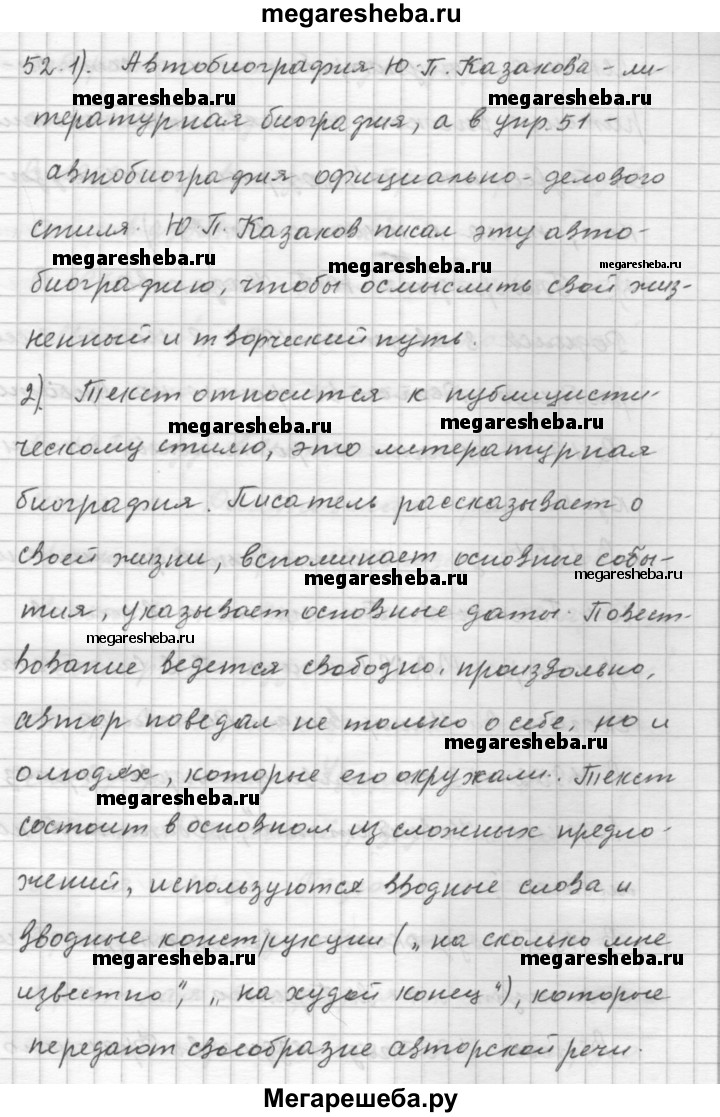 megaresheba.ru
52.1). Автобиография Ю.П. Казакова - ли-
megaresheba.ru megaresheba.ru
тературная биография, а в упр. 51 -
автобиография официально-делового
стиля. Ю.П. Казаков писал эту авто-
megaresheba.ru megaresheba.ru megaresheba.ru
биографию, чтобы осмыслить свой жиз-
ненный и творческий путь.
2). Текст относится к публицисти-
megaresheba.ru megaresheba.ru
ческому стилю, это литературная
биография. Писатель рассказывает о
своей жизни, вспоминает основные собы-
megaresheba.ru megaresheba.ru
тия, указывает основные даты. Повест-
megaresheba.ru
вование ведется свободно, произвольно,
автор поведал не только о себе, но и
megaresheba.ru
о людях, которые его окружали. Текст
megaresheba.ru
состоит в основном из сложных предло-
жений, используются вводные слова и
вводные конструкции („на сколько мне
megaresheba.ru megaresheba.ru
известно“, „на худой конец“), которые
передают своеобразие авторской речи.
Мегарешеба.ру